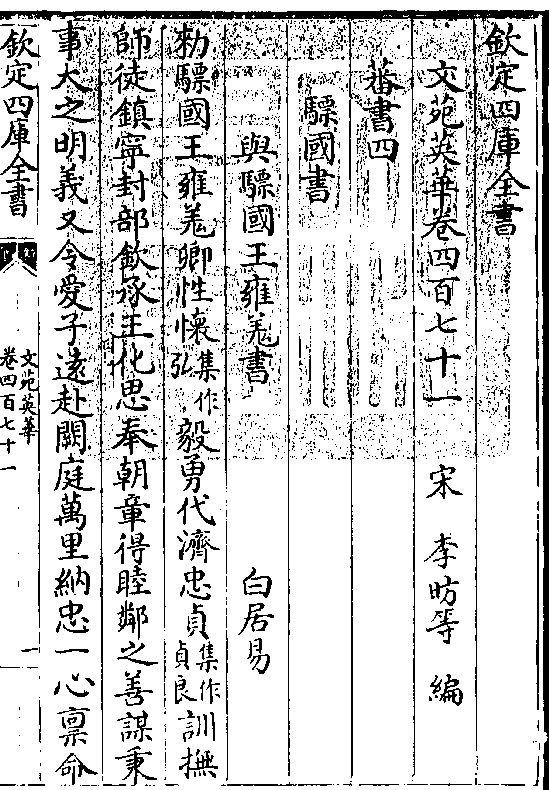 欽定四庫全書
文苑英華卷四百七十一　宋　李昉等　編
蕃書四
驃國書
與驃國王雍羗書　白居易
勑驃國王雍羗卿性懷集作弘毅勇代濟忠貞集作貞良訓撫
師徒鎮寧封部欽承王化思奉朝章得睦鄰之善謀秉
事大之明義又令愛子遠赴闕庭萬里納忠一心禀命
欽定四庫全書
文苑英華
卷四百七十一
一